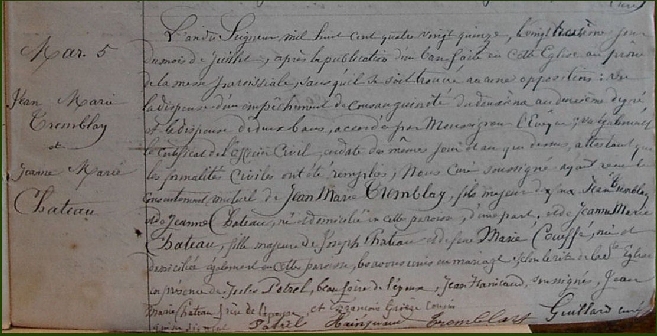 Mar. 5
Jean Marie
Tremblay
et
Jeanne Marie
Chateau
L'an du Seigneur mil huit cent quatre vingt quinze, le vingt troisième jour
du mois de juillet, après la publication d'un ban faite en cette Eglise au prône
de la messe paroissiale, sans qu'il se soit trouvé aucune opposition; Vu
la dispense d'un empêchement de consanguinité du deuxième au deuxième degré
et la dispense de deux bans, accordée par Monseigneur l'Evêque; Vu également
le certificat de l'officier Civil, en date du même jour que dessus, attestant que
les formalités civiles ont été remplies; Nous Curé soussigné ayant reçu le
consentement mutuel de Jean Marie Tremblay, fils majeur de feu Jean Tremblay
et de Jeanne Chateau, né et domicilié en cette paroisse, d'une part, et de Jeanne Marie
Chateau, fille majeure de Joseph Chateau et de feue Marie Coueffé, née et
domiciliée également en cette paroisse, les avons unis en mariage selon le rite de la Ste Eglise
en présence de Jules Petrel, beau frère de l'époux, Jean soussigné, Jean
Marie Chateau frère de l'épouse, et François cousin
Petrel Tremblay Guillard curé